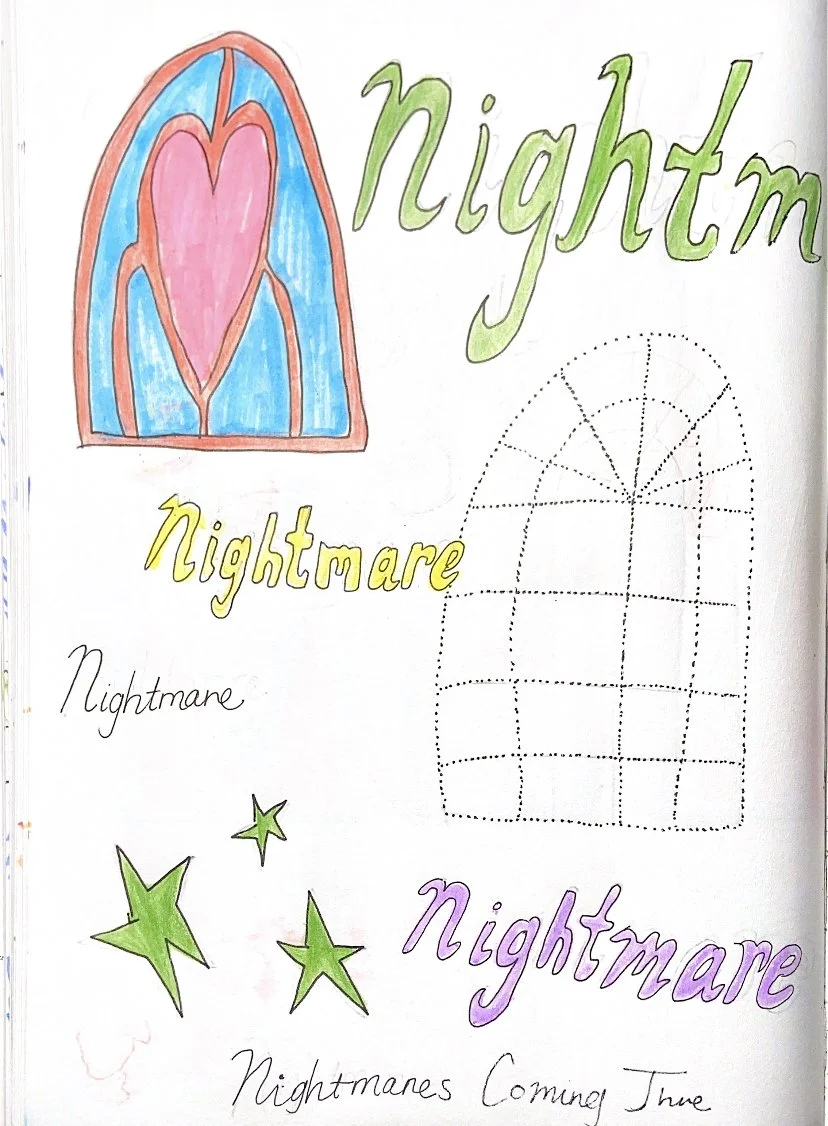 Nightm
Nightmare
Nightmare
Nightmare
Nightmares Coming True